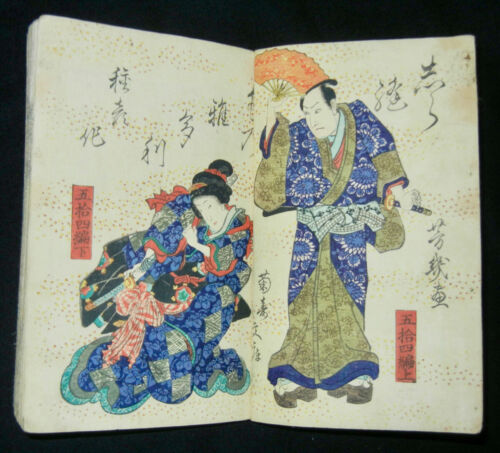 志ら
縫
芳幾画
五拾四編上
雅
多
利
種彦作
五拾四編下
菊寿